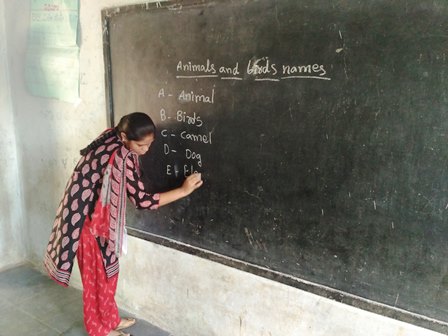 Animals and birds names
A - Animal
B - Birds
C - Camel
D - Dog
E - Ele